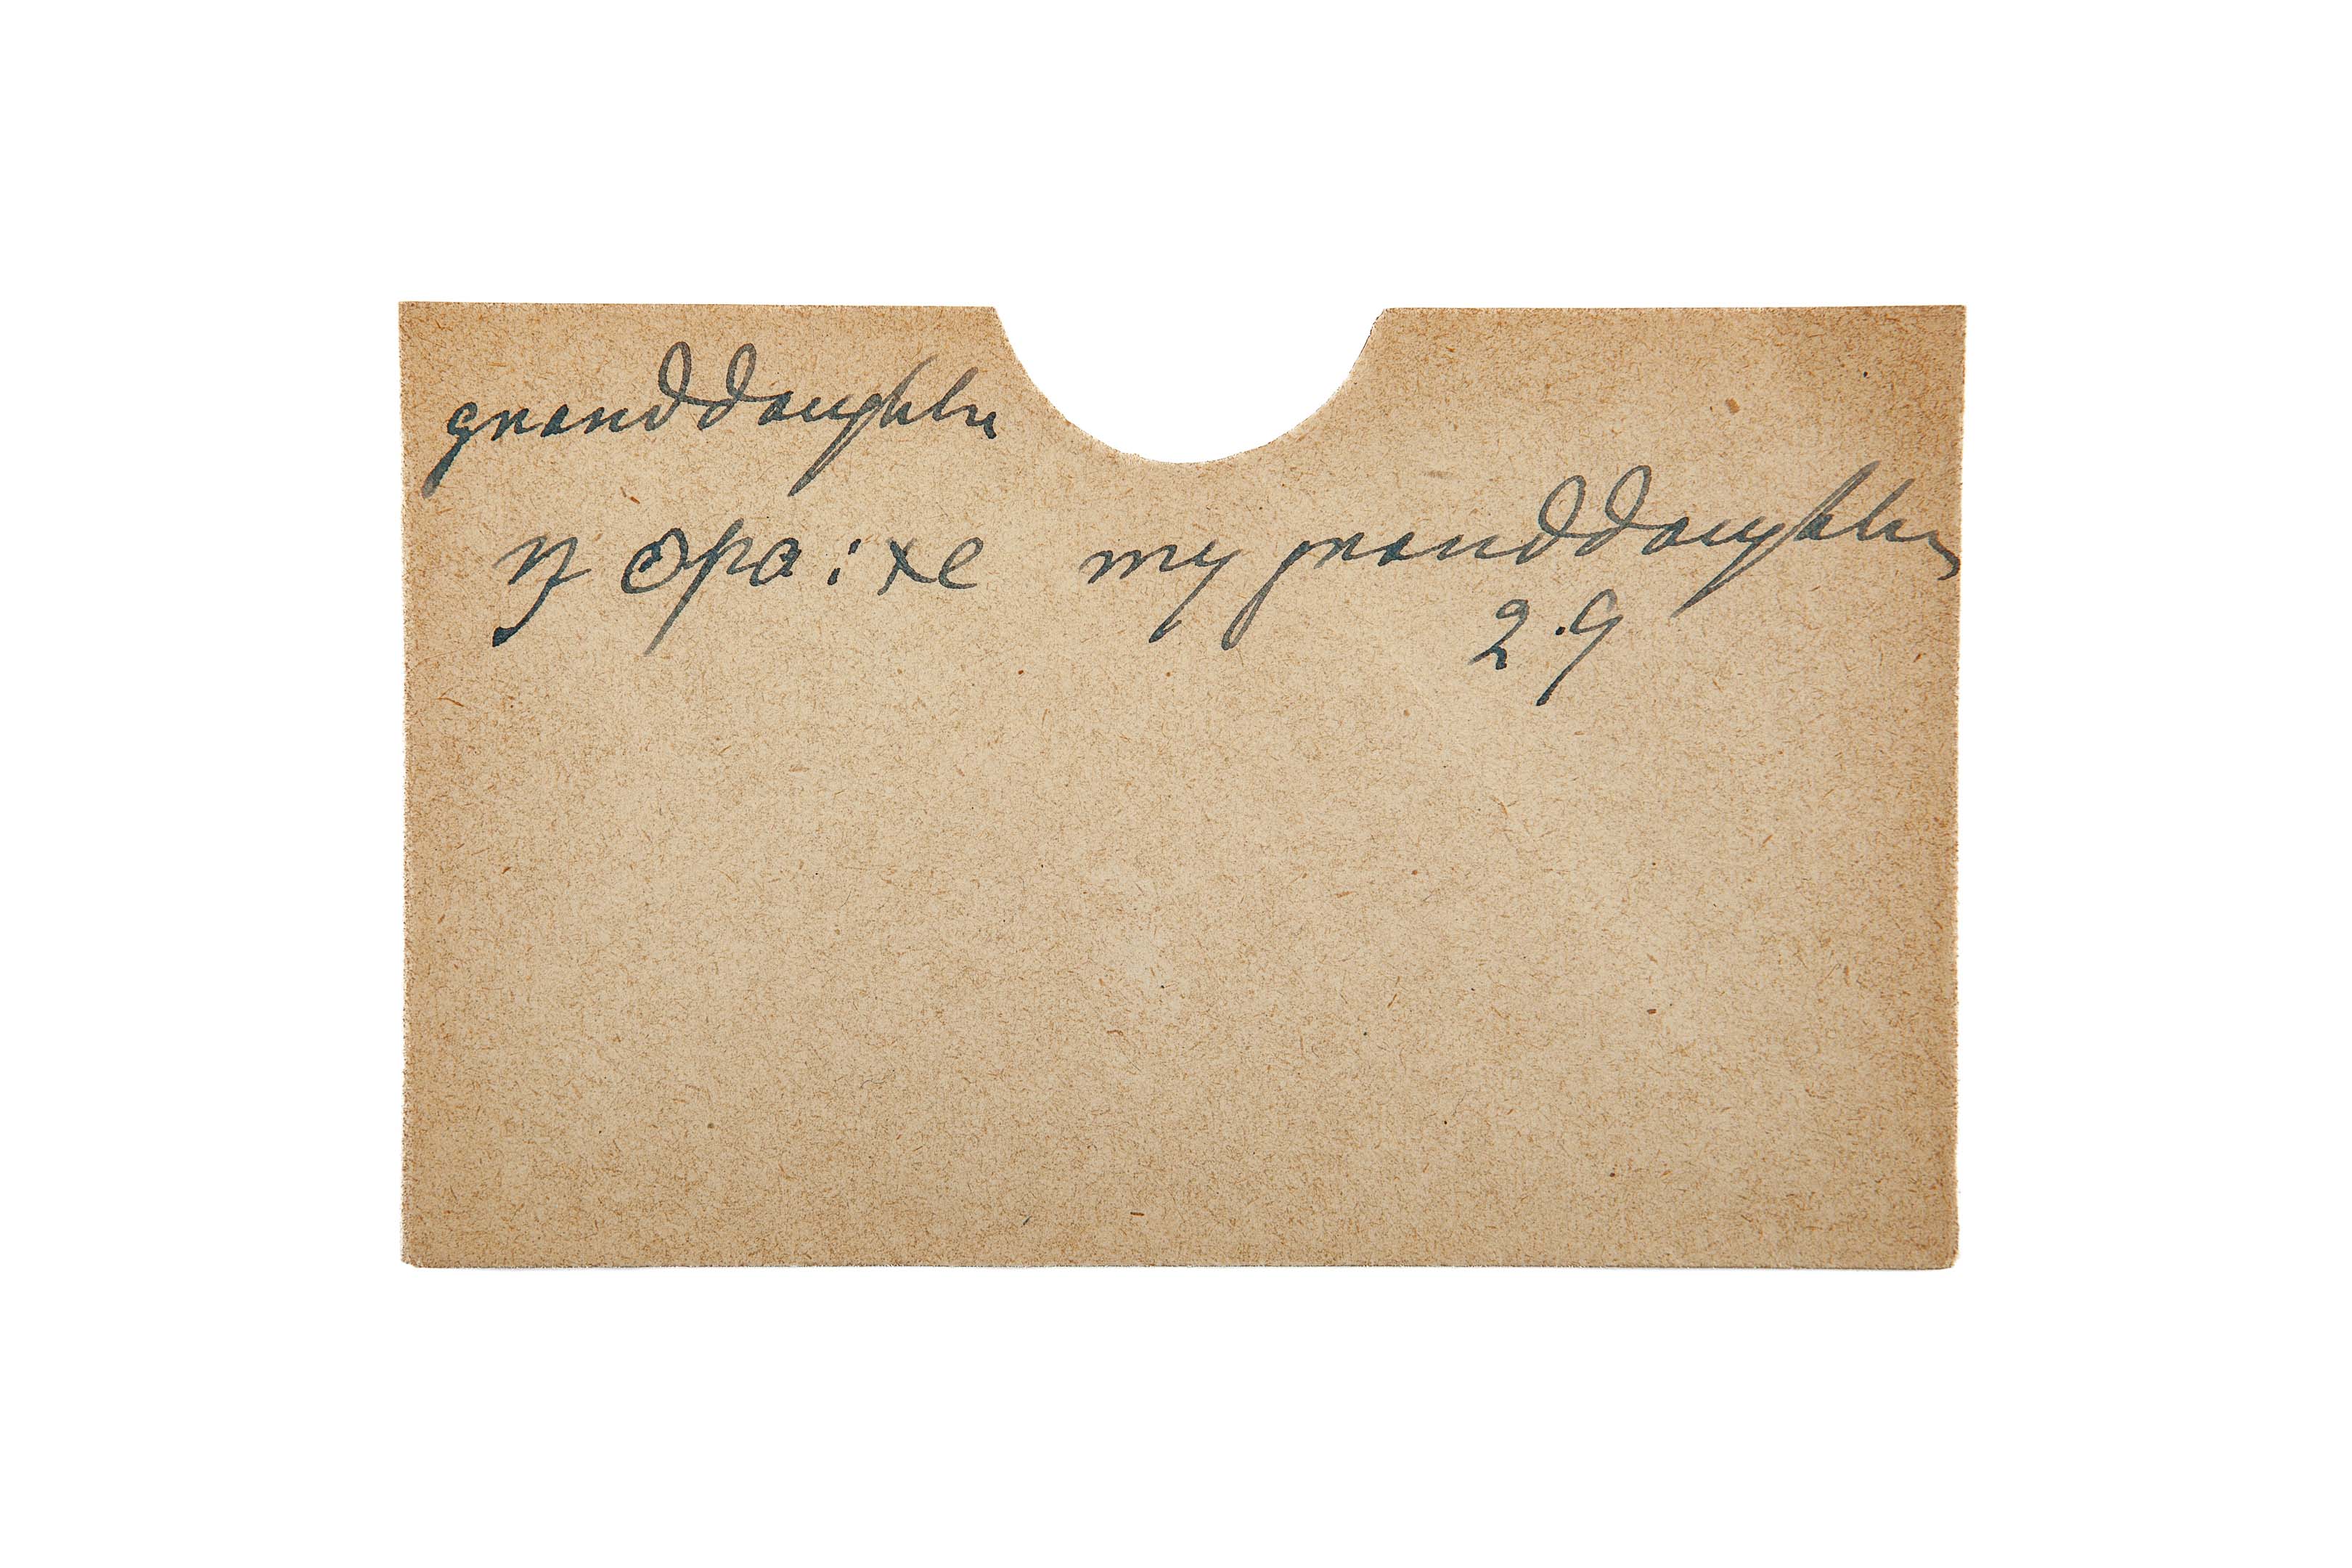 granddaughter
my granddaughter
2.9